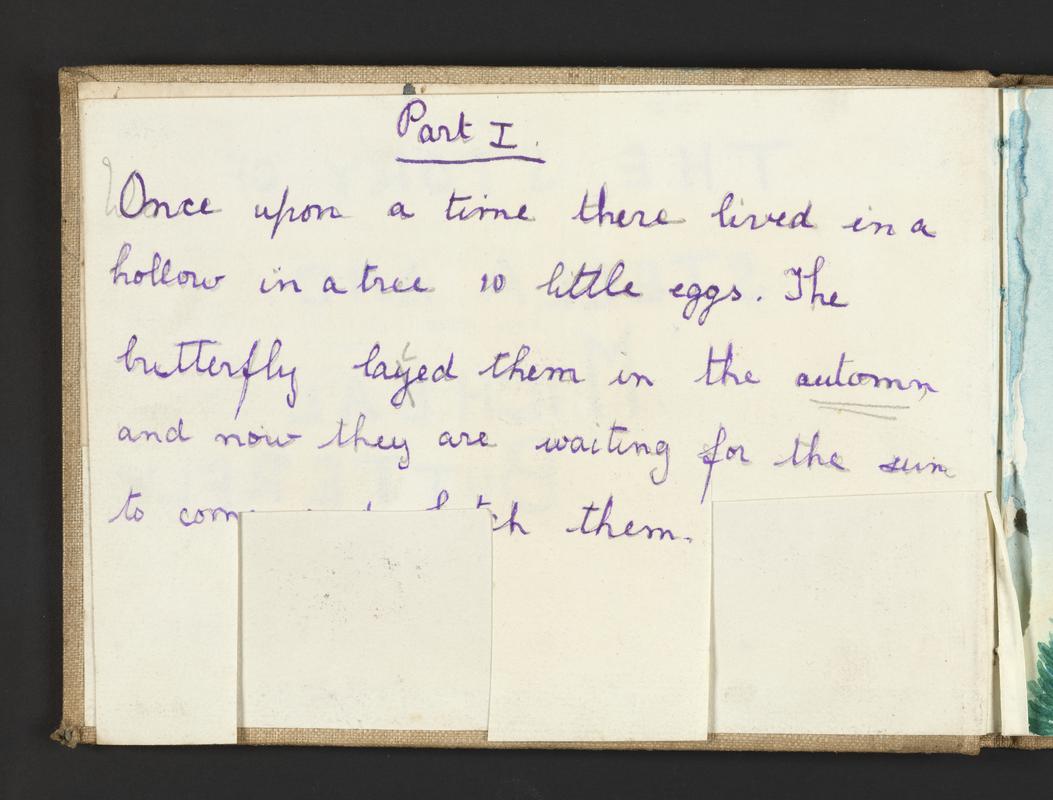 Part I.
Once upon a time there lived in a
hollow in a tree 10 little eggs. The
butterfly layed them in the automn
and now they are waiting for the sun
to them.